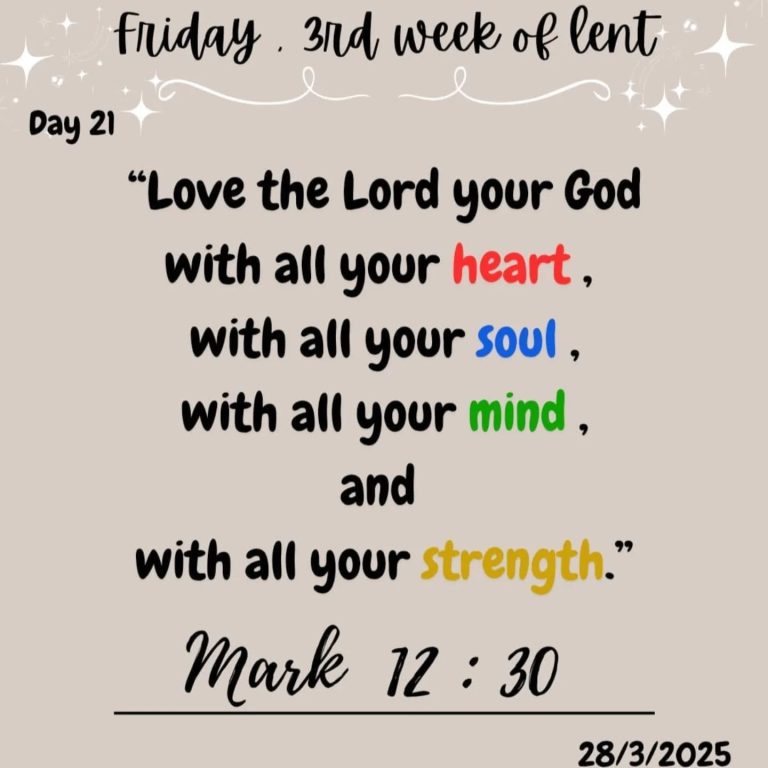 Friday . 3rd week of lent
Day 21
“Love the Lord your God
with all your heart ,
with all your soul ,
with all your mind ,
and
with all your strength.”
Mark 12 : 30
28/3/2025